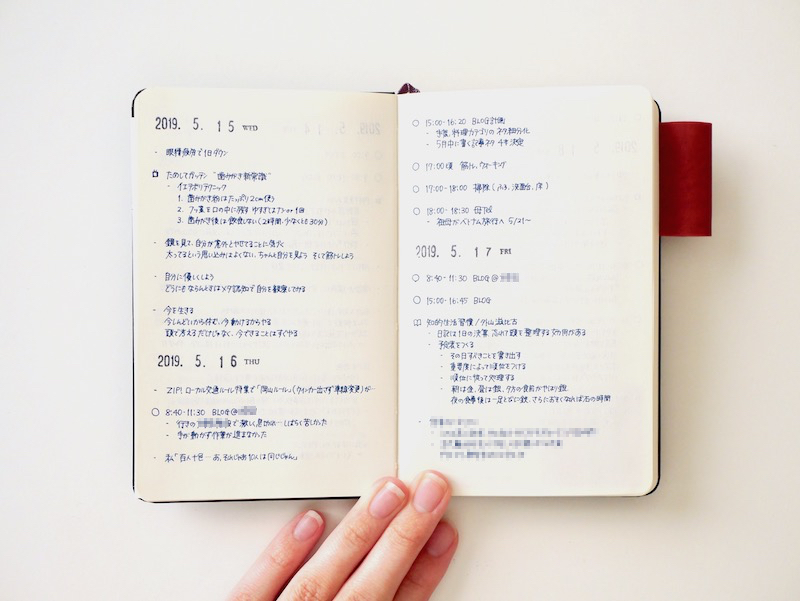 2019. 5. 15 WED
- 眼精疲労で1日ダウン
ためしてガッテン "歯みがき新常識"
- イエテボリテクニック
1. 歯みがき粉はたっぷり2cm使う
2. フッ素を口の中に残す ゆすぎは1回
3. 歯みがき後は飲食しない(2時間、少なくとも30分)
- 鏡を見て、自分が意外とやせてることに気づく
太ってるという思い込みはよくない、ちゃんと自分を見よう そして筋トレしよう
- 自分に優しくしよう
どうにもならんときはメタ認知で自分を観察してみる
- 今を生きる
今しんどいから休む、今動けるからやる
頭で考えるだけじゃなく、今できることはすぐやる
2019. 5. 16 THU
- ZIP! ローカル交通ルール特集で「岡山ルール」(ウインカー出さず車線変更)が…
○ 8:40-11:30 BLOG@
- 行きの で激しく息切れ…しばらく苦しかった
- 手が動かず作業が進まなかった
- 私「百人十色…あ、それじゃあ10人は同じじゃん」
○ 15:00-16:20 BLOG計画
- 手帳、料理カテゴリのネタ細分化
- 5月中に書く記事ネタ 4本決定
○ 17:00頃 筋トレ、ウォーキング
○ 17:00-18:00 掃除(ふろ、洗面台、床)
○ 18:00-18:30 母TEL
- 祖母がベトナム旅行へ 5/21〜
2019. 5. 17 FRI
○ 8:40-11:30 BLOG@
○ 15:00-16:45 BLOG
知的生活習慣/外山滋比古
- 日記は1日の決算、忘れて頭を整理する効用がある
- 予定表をつくる
- その日すべきことを書き出す
- 重要度によって順位をつける
- 順位に従って処理する
- 朝は金、昼は銀、夕方の食前がやはり銀、
夜の食事後は一足とびに鉄、さらにおそくなれば石の時間